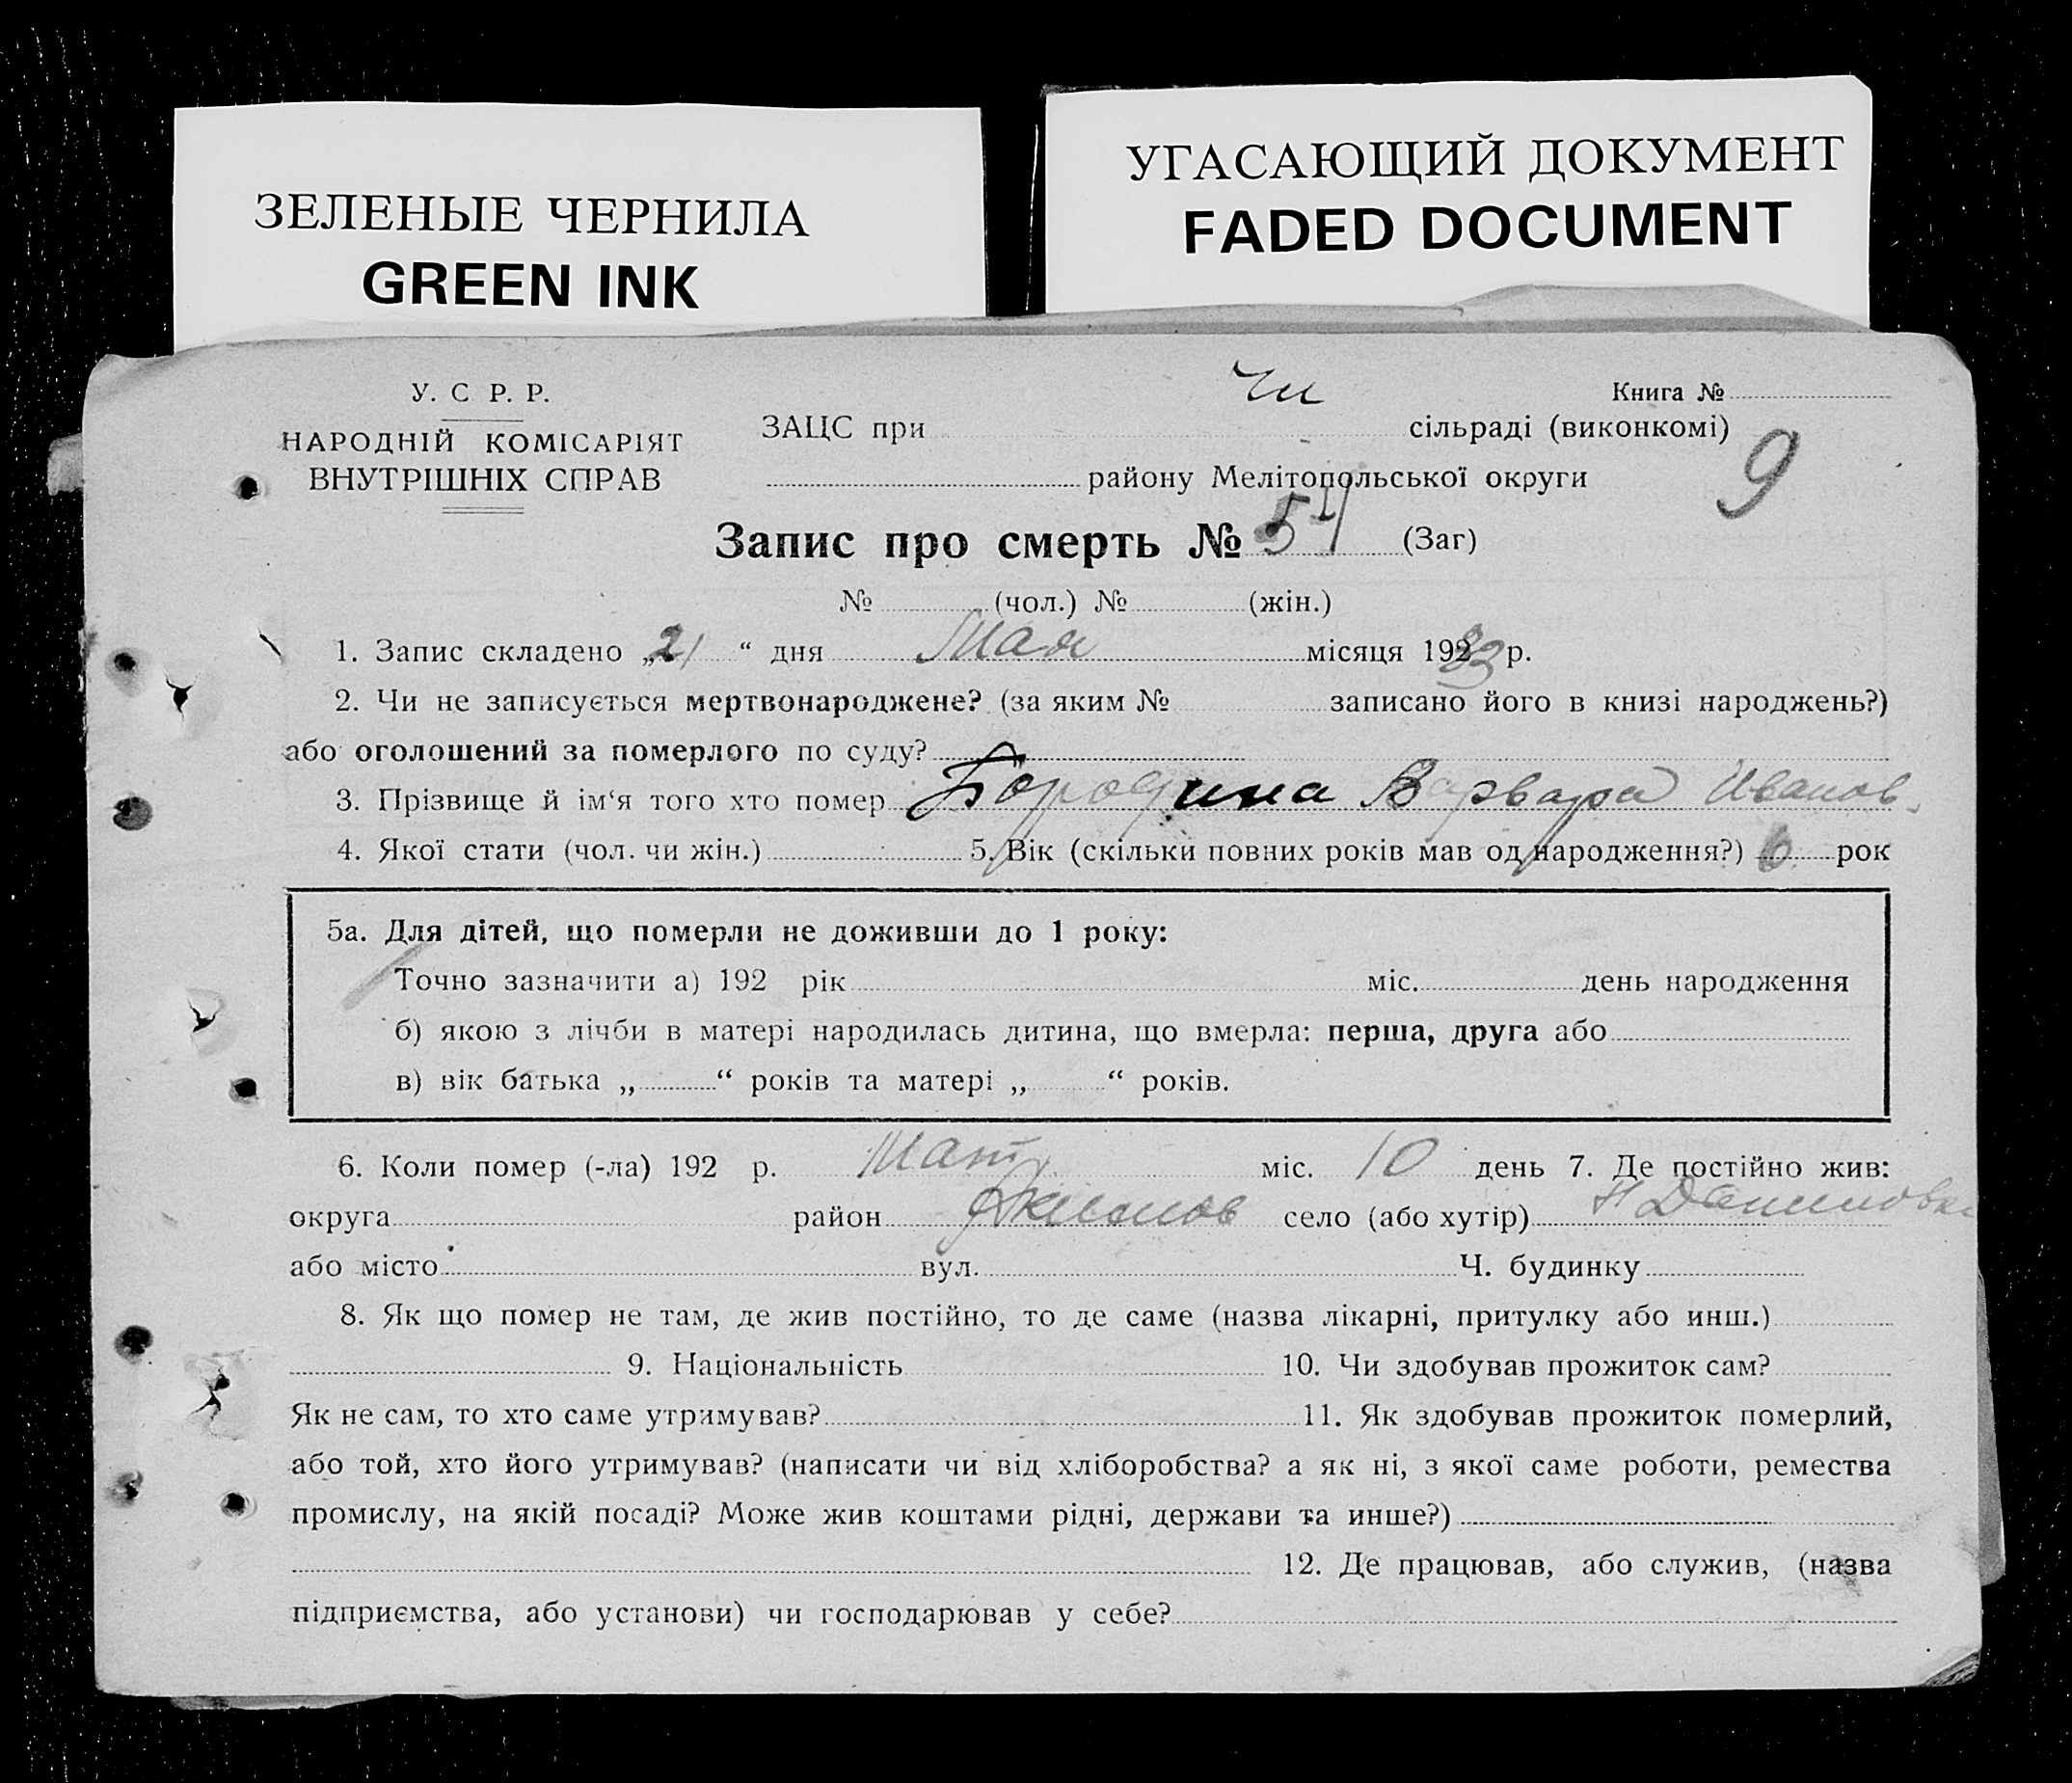 ЗЕЛЕНЫЕ ЧЕРНИЛА
GREEN INK
УГАСАЮЩИЙ ДОКУМЕНТ
FADED DOCUMENT
У. С Р. Р.
НАРОДНІЙ КОМІСАРІЯТ
ВНУТРІШНІХ СПРАВ
Книга №
ЗАЦС при сільраді (виконкомі)
району Мелітопольської округи
9
Запис про смерть № 54 (Заг)
№ (чол.) № (жін.)
1. Запис складено „21“ дня Мая місяця 1933 р.
2. Чи не записується мертвонароджене? (за яким № записано його в книзі народжень?)
або оголошений за померлого по суду?
3. Прізвище й ім‘я того хто помер Бородина Варвара Иванов.
4. Якої стати (чол. чи жін.) 5. Вік (скільки повних років мав од народження?) 6 рок
5а. Для дітей, що померли не доживши до 1 року:
Точно зазначити а) 192 рік міс. день народження
б) якою з лічби в матері народилась дитина, що вмерла: перша, друга або
в) вік батька „ “ років та матері „ “ років.
6. Коли помер (-ла) 192 р. міс. 10 день 7. Де постійно жив:
округа район село (або хутір) Н Даниловка
або місто вул. Ч. будинку
8. Як що помер не там, де жив постійно, то де саме (назва лікарні, притулку або инш.)
9. Національність 10. Чи здобував прожиток сам?
Як не сам, то хто саме утримував? 11. Як здобував прожиток померлий,
або той, хто його утримував? (написати чи від хліборобства? а як ні, з якої саме роботи, ремества
промислу, на якій посаді? Може жив коштами рідні, держави та инше?)
12. Де працював, або служив, (назва
підприємства, або установи) чи господарював у себе?